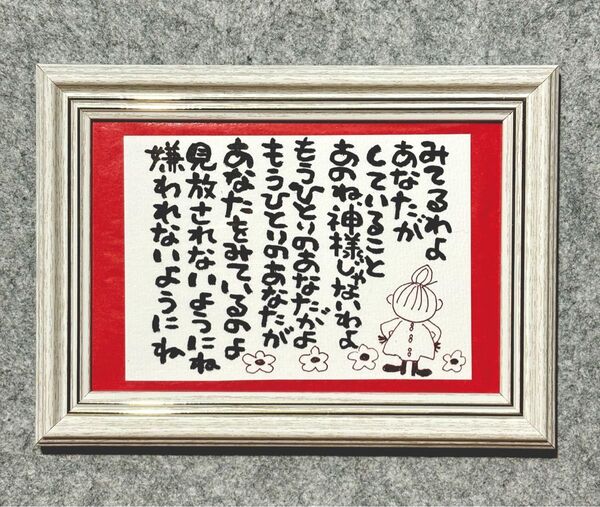 みてるわよ
あなたが
していること
あのね、神様じゃないわよ
もうひとりのあなただよ
もうひとりのあなたが
あなたをみているのよ
見放されないようにね
嫌われないようにね